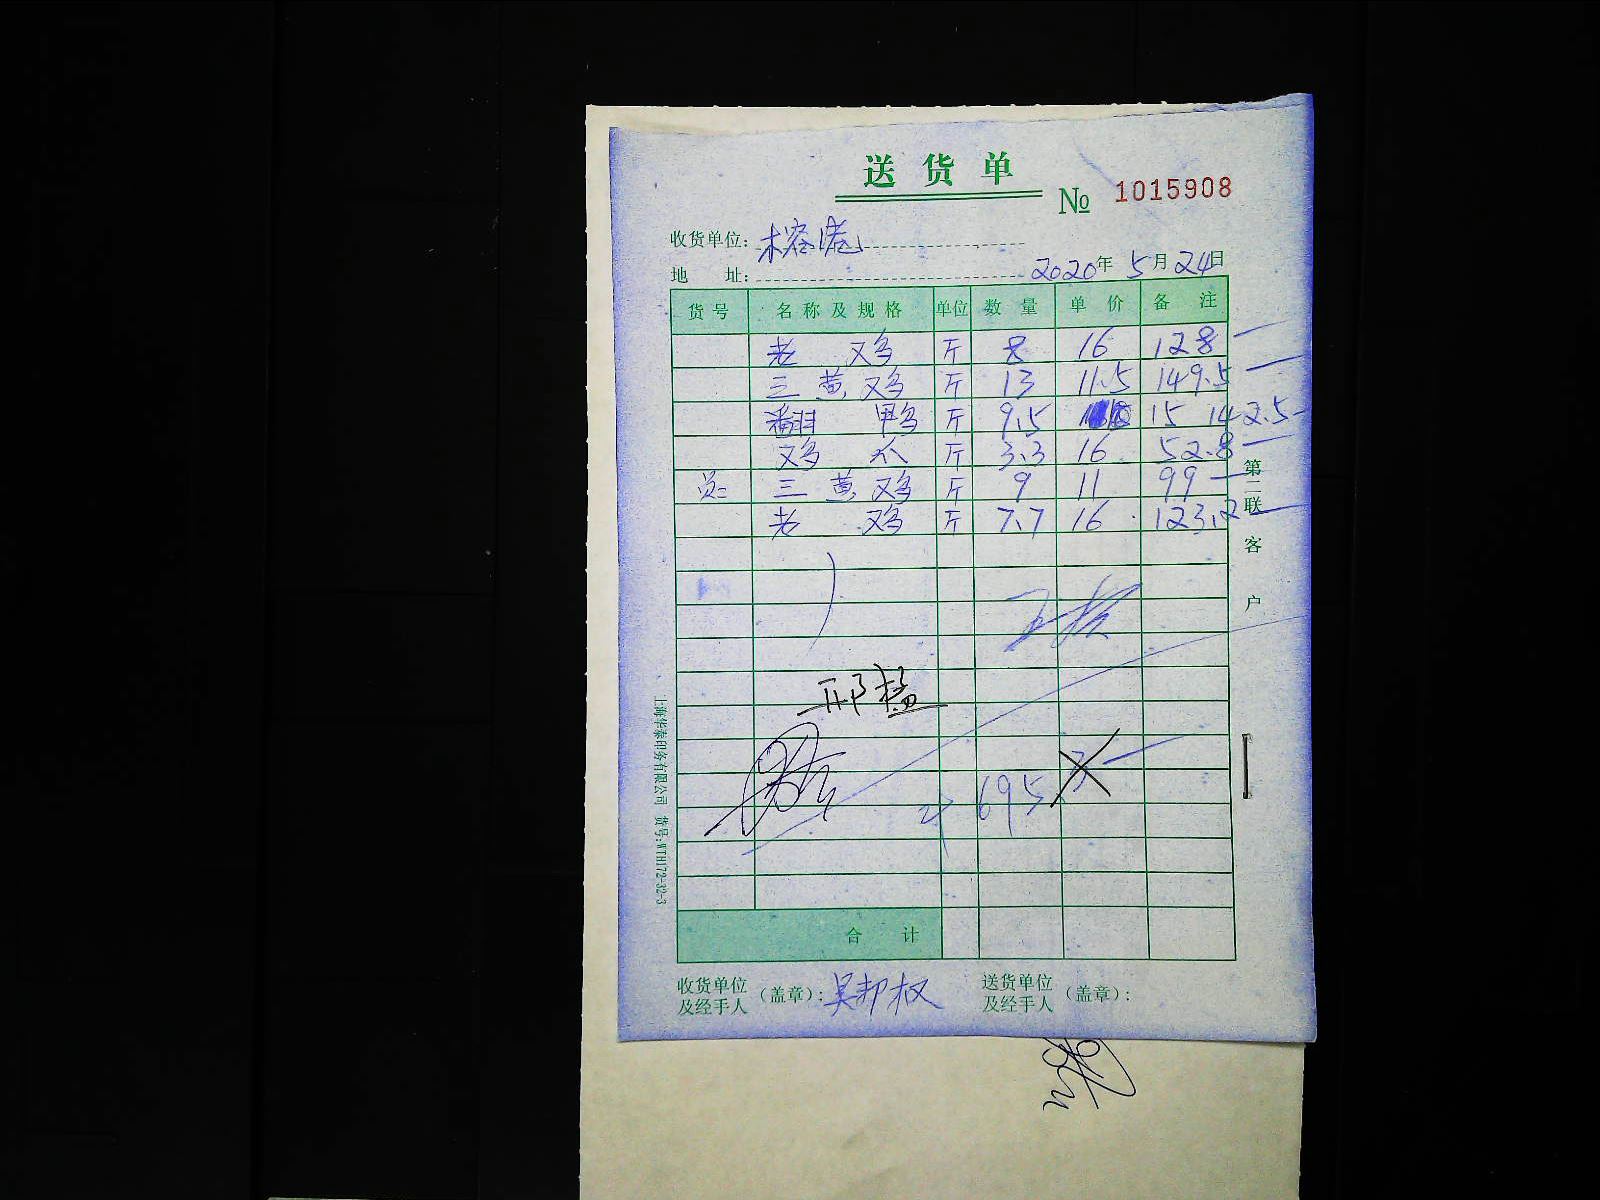 送货单
№ 1015908
收货单位：木容港
地 址： 2020年 5月 24日
货号 名称及规格 单位 数量 单价 备注
老鸡 斤 8 16 128
三黄鸡 斤 13 11.5 149.5
翻鸭 斤 9.5 15 142.5
鸡爪 斤 3.3 16 52.8
三黄鸡 斤 9 11 99
老鸡 斤 7.7 16 123.2
695
合 计
收货单位及经手人（盖章）：吴邦权
送货单位及经手人（盖章）：
第二联 客户
上海华泰印务有限公司 货号:WTH172-32-3